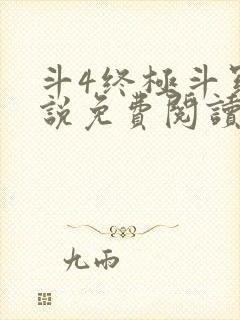 斗4终極斗
說免費閱讀
九雨